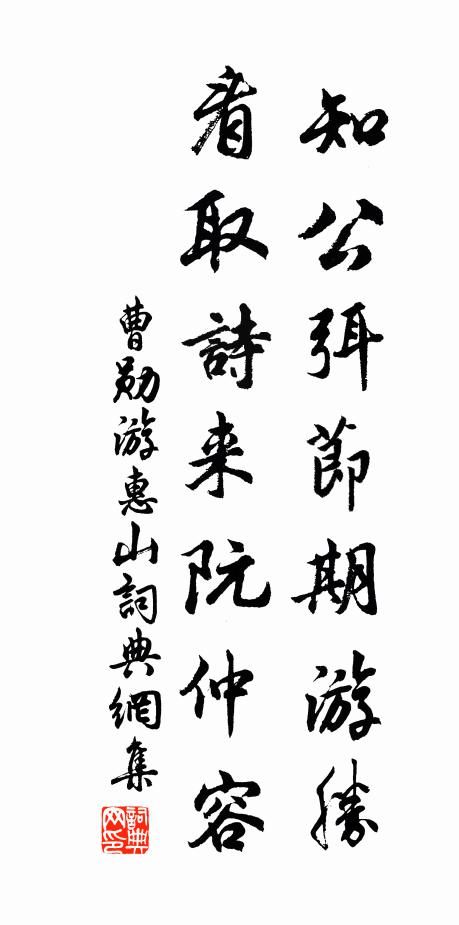 知公弭節期游勝
看取詩来阮仲容
曹勛游惠山詞典網集
詞典网印